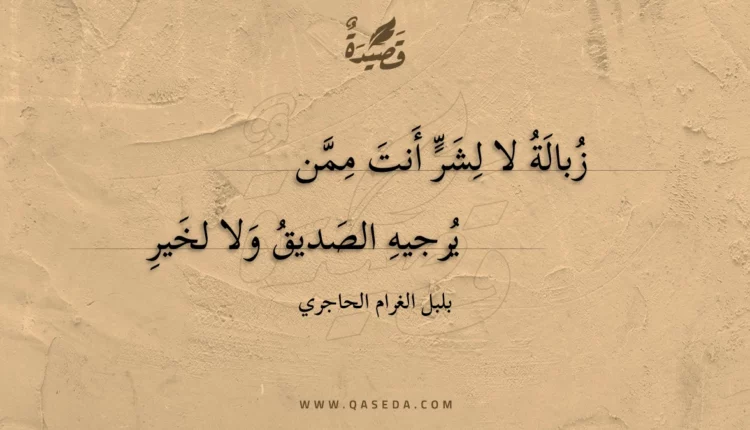 قَصِيدَةٌ
زُبالَةُ لا لِشَرٍّ أَنتَ مِمَّن
يُرجيهِ الصَديقُ وَلا لخَيرِ
بلبل الغرام الحاجري
WWW.QASEDA.COM